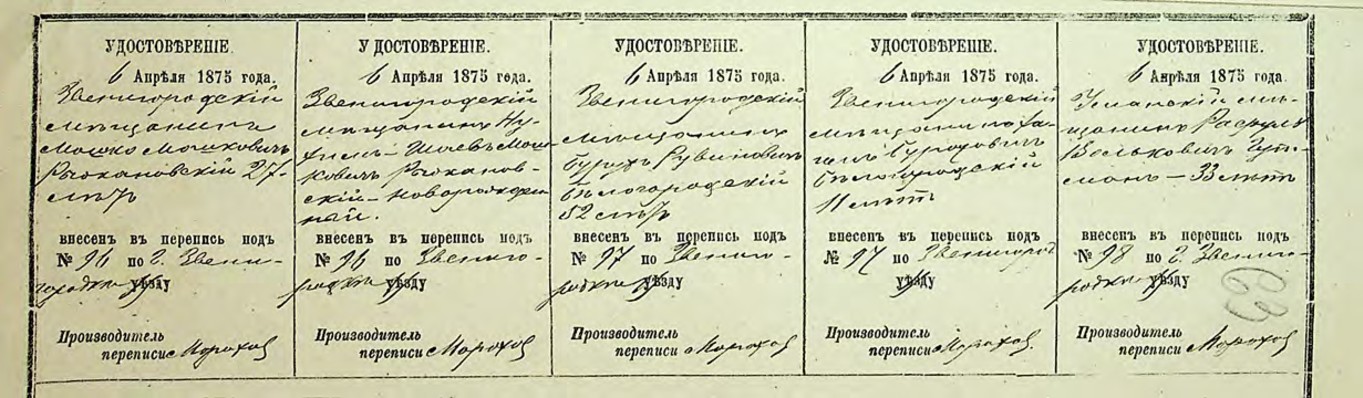 УДОСТОВѢРЕНІЕ.
6 Апрѣля 1875 года.
Звенигородскій
мѣщанинъ
Мошко Мошковичъ
27-
лѣтъ
внесенъ въ перепись подъ
№ 96 по г. Звени-
городкѣ уѣзду
Производитель
переписи
УДОСТОВѢРЕНІЕ.
6 Апрѣля 1875 года.
Звенигородскій
мѣщанинъ Ну-
химъ- Мош-
ковичъ
скій- новорожден-
ный.
внесенъ въ перепись подъ
№ 96 по Звениго-
родкѣ уѣзду
Производитель
переписи
УДОСТОВѢРЕНІЕ.
6 Апрѣля 1875 года.
Звенигородскій
мѣщанинъ
Бурухъ Рувиновичъ
Бѣлогородскій
52 лѣтъ
внесенъ въ перепись подъ
№ 97 по Звениго-
родкѣ уѣзду
Производитель
переписи
УДОСТОВѢРЕНІЕ.
6 Апрѣля 1875 года.
Звенигородскій
мѣщанинъ
Буруховичъ
Бѣлогородскій
11 лѣтъ
внесенъ въ перепись подъ
№ 97 по Звенигород
уѣзду
Производитель
переписи
УДОСТОВѢРЕНІЕ.
6 Апрѣля 1875 года.
Уманскій мѣ-
щанинъ
Вольковичъ Гут-
манъ - 33 лѣтъ
внесенъ въ перепись подъ
№ 98 по г. Звениго-
родкѣ уѣзду
Производитель
переписи